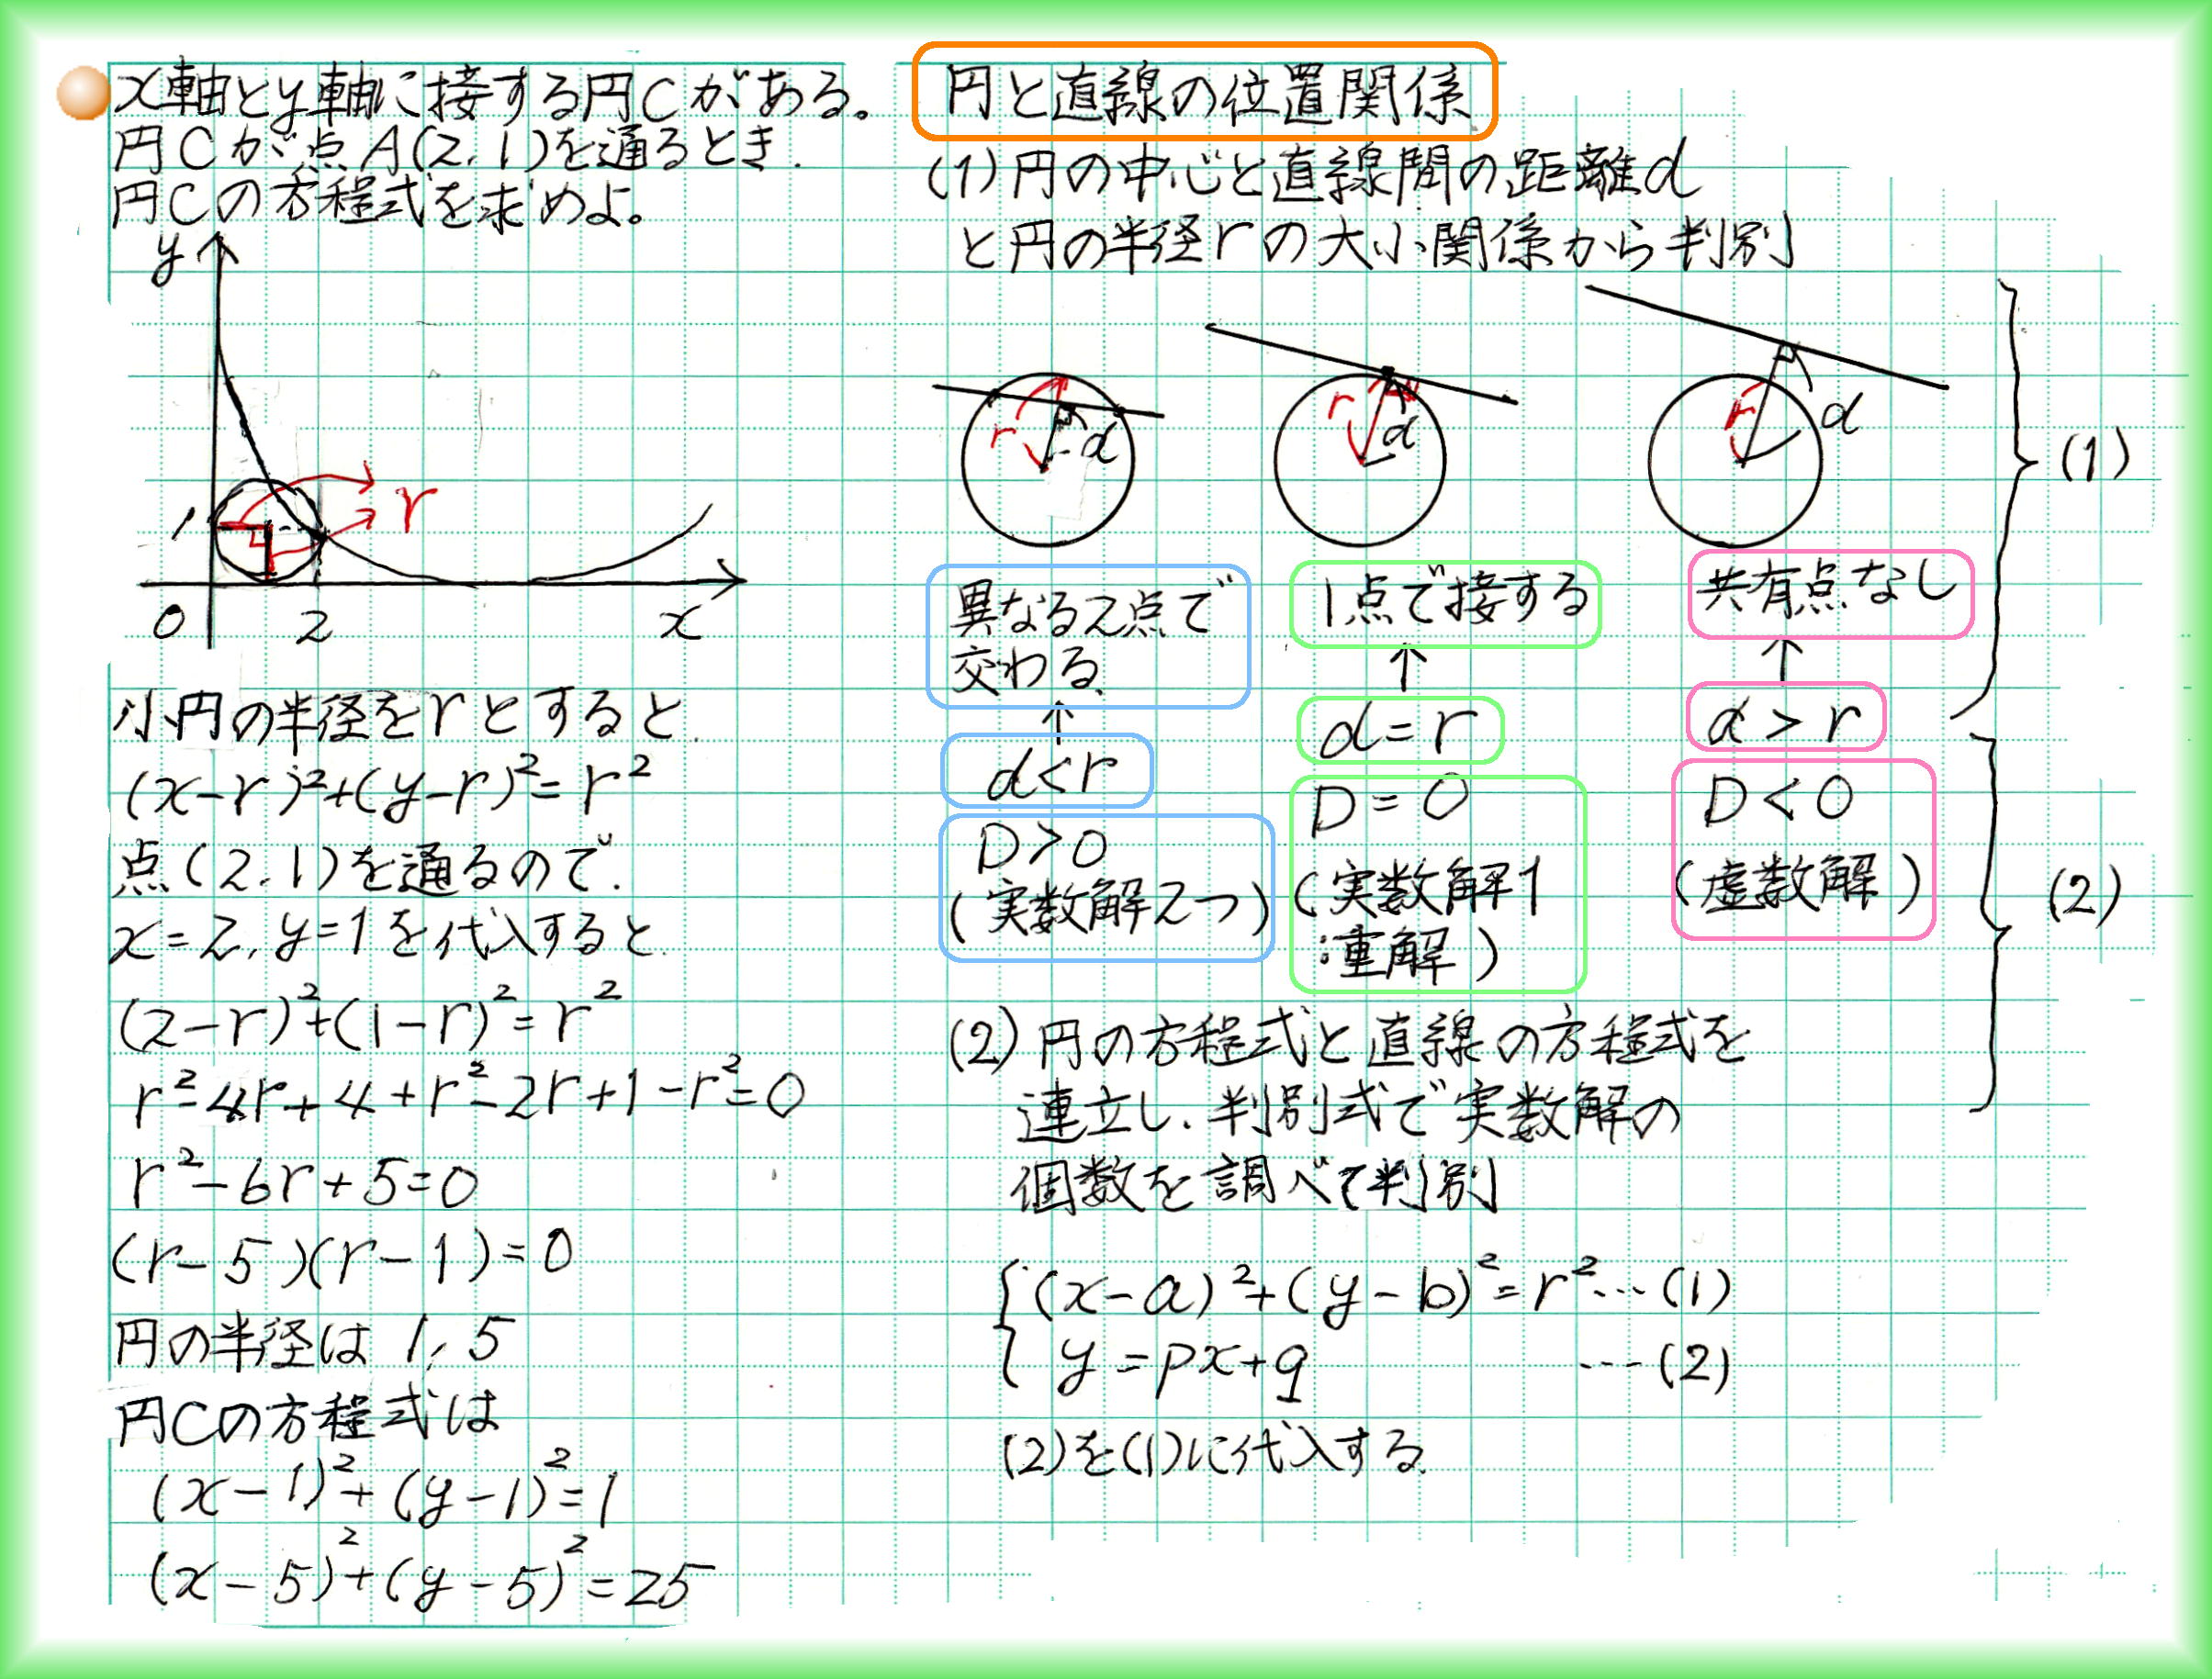 x軸とy軸に接する円Cがある。
円Cが点A(2,1)を通るとき、
円Cの方程式を求めよ。
y
r
1
0
2
x
小円の半径をrとすると、
(x-r)²+(y-r)²=r²
点(2,1)を通るので、
x=2,y=1を代入すると、
(2-r)²+(1-r)²=r²
r²-4r+4+r²-2r+1-r²=0
r²-6r+5=0
(r-5)(r-1)=0
円の半径は1,5
円Cの方程式は
(x-1)²+(y-1)²=1
(x-5)²+(y-5)²=25
円と直線の位置関係
(1)円の中心と直線間の距離d
と円の半径rの大小関係から判別
r d
r d
r d
(1)
異なる2点で
交わる
1点で接する
共有点なし
↑
↑
↑
d<r
d=r
d>r
D>0
(実数解2つ)
D=0
(実数解1
:重解)
D<0
(虚数解)
(2)
(2)円の方程式と直線の方程式を
連立し、判別式で実数解の
個数を調べて判別
(x-a)²+(y-b)²=r²…(1)
y=px+q …(2)
(2)を(1)に代入する